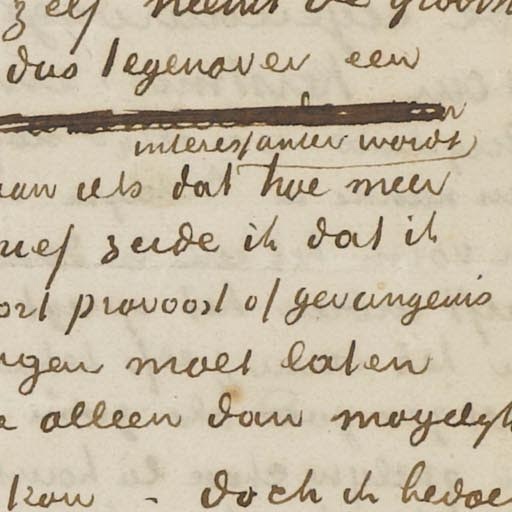 zelf neemt de groots
dus tegenover een
interessanter wordt
aan iets dat hoe meer
rief zeide ik dat ik
oort provoost of gevangenis
ngen moet laten
e alleen dan mogelyk
kon - doch ik bedoe